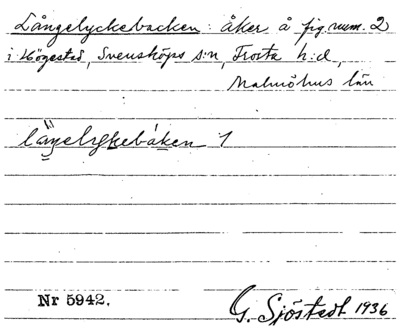 Långelyckebacken: åker å fig. num. 2
i Högestad, Svensköps s:n, Frosta h:d,
Malmöhus län
längelykebáken 1
Nr 5942.
G. Sjöstedt 1936